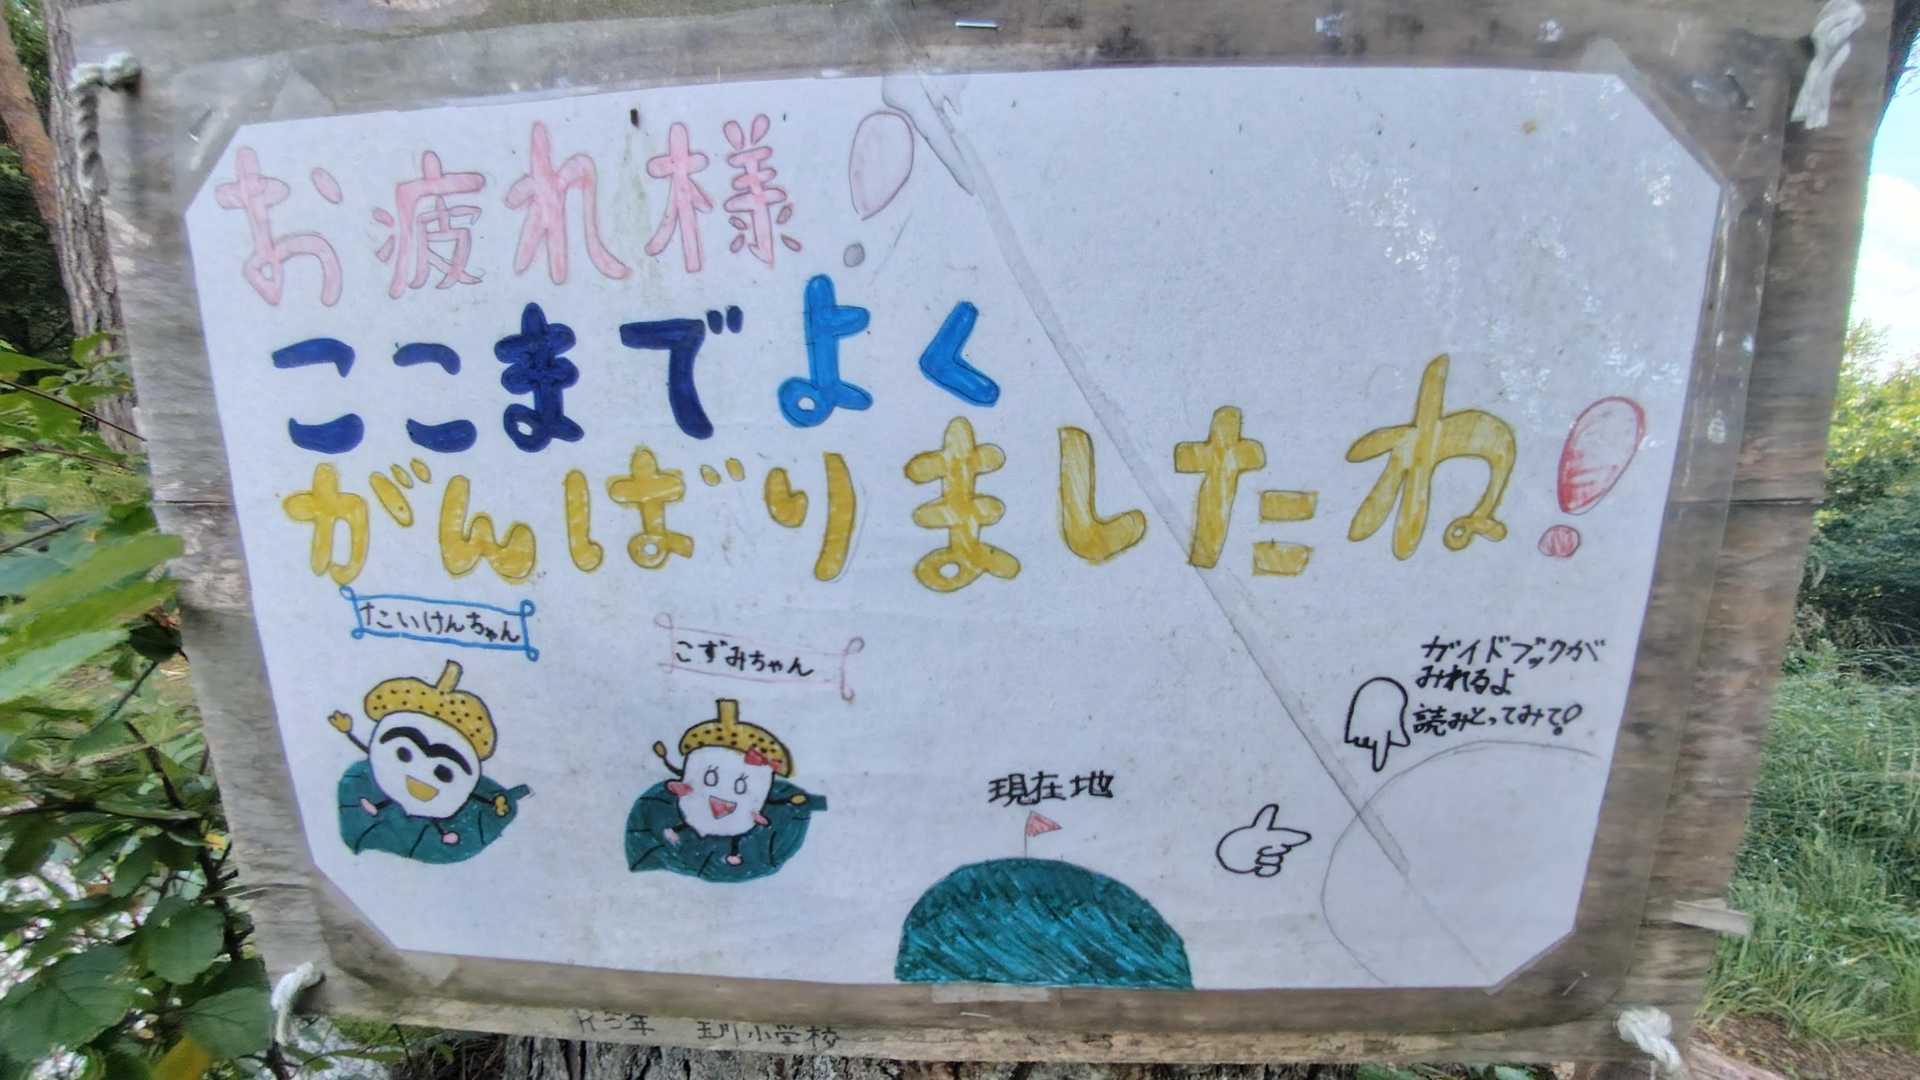 お疲れ様!
ここまでよく
がんばりましたね!
たいけんちゃん
こずみちゃん
ガイドブックが
みれるよ
読みとってみて!
現在地
玉川小学校